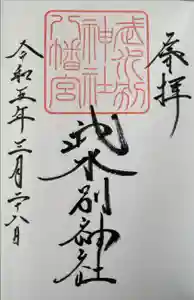 奉拝
武水別
神社
八幡宮
武水別神社
令和五年三月二十八日